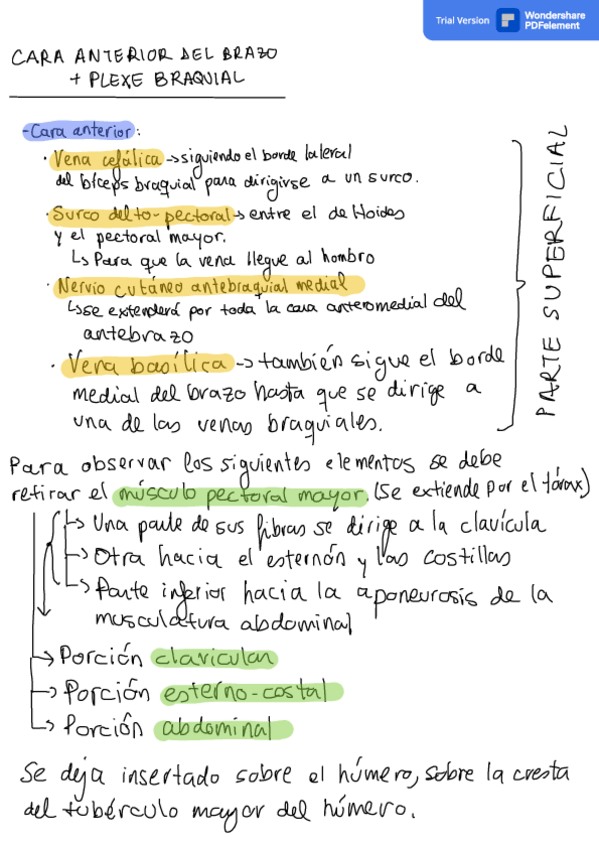 Trial Version
Wondershare
PDFelement
CARA ANTERIOR DEL BRAZO
+ PLEXE BRAQUIAL
- Cara anterior:
· Vena cefálica → siguiendo el borde lateral
del bíceps braquial para dirigirse a un surco.
· Surco delto-pectoral → entre el deltoides
y el pectoral mayor.
↳ Para que la vena llegue al hombro
· Nervio cutáneo antebraquial medial
↳ se extenderá por toda la cara anteromedial del
antebrazo
· Vena basílica → también sigue el borde
medial del brazo hasta que se dirige a
una de las venas braquiales.
PARTE SUPERFICIAL
Para observar los siguientes elementos se debe
retirar el músculo pectoral mayor. (Se extiende por el tórax)
↳ Una parte de sus fibras se dirige a la clavícula
↳ Otra hacia el esternón y las costillas
↳ Parte inferior hacia la aponeurosis de la
musculatura abdominal
→ Porción clavicular
→ Porción esterno-costal
↳ Porción abdominal
Se deja insertado sobre el húmero, sobre la cresta
del tubérculo mayor del húmero.